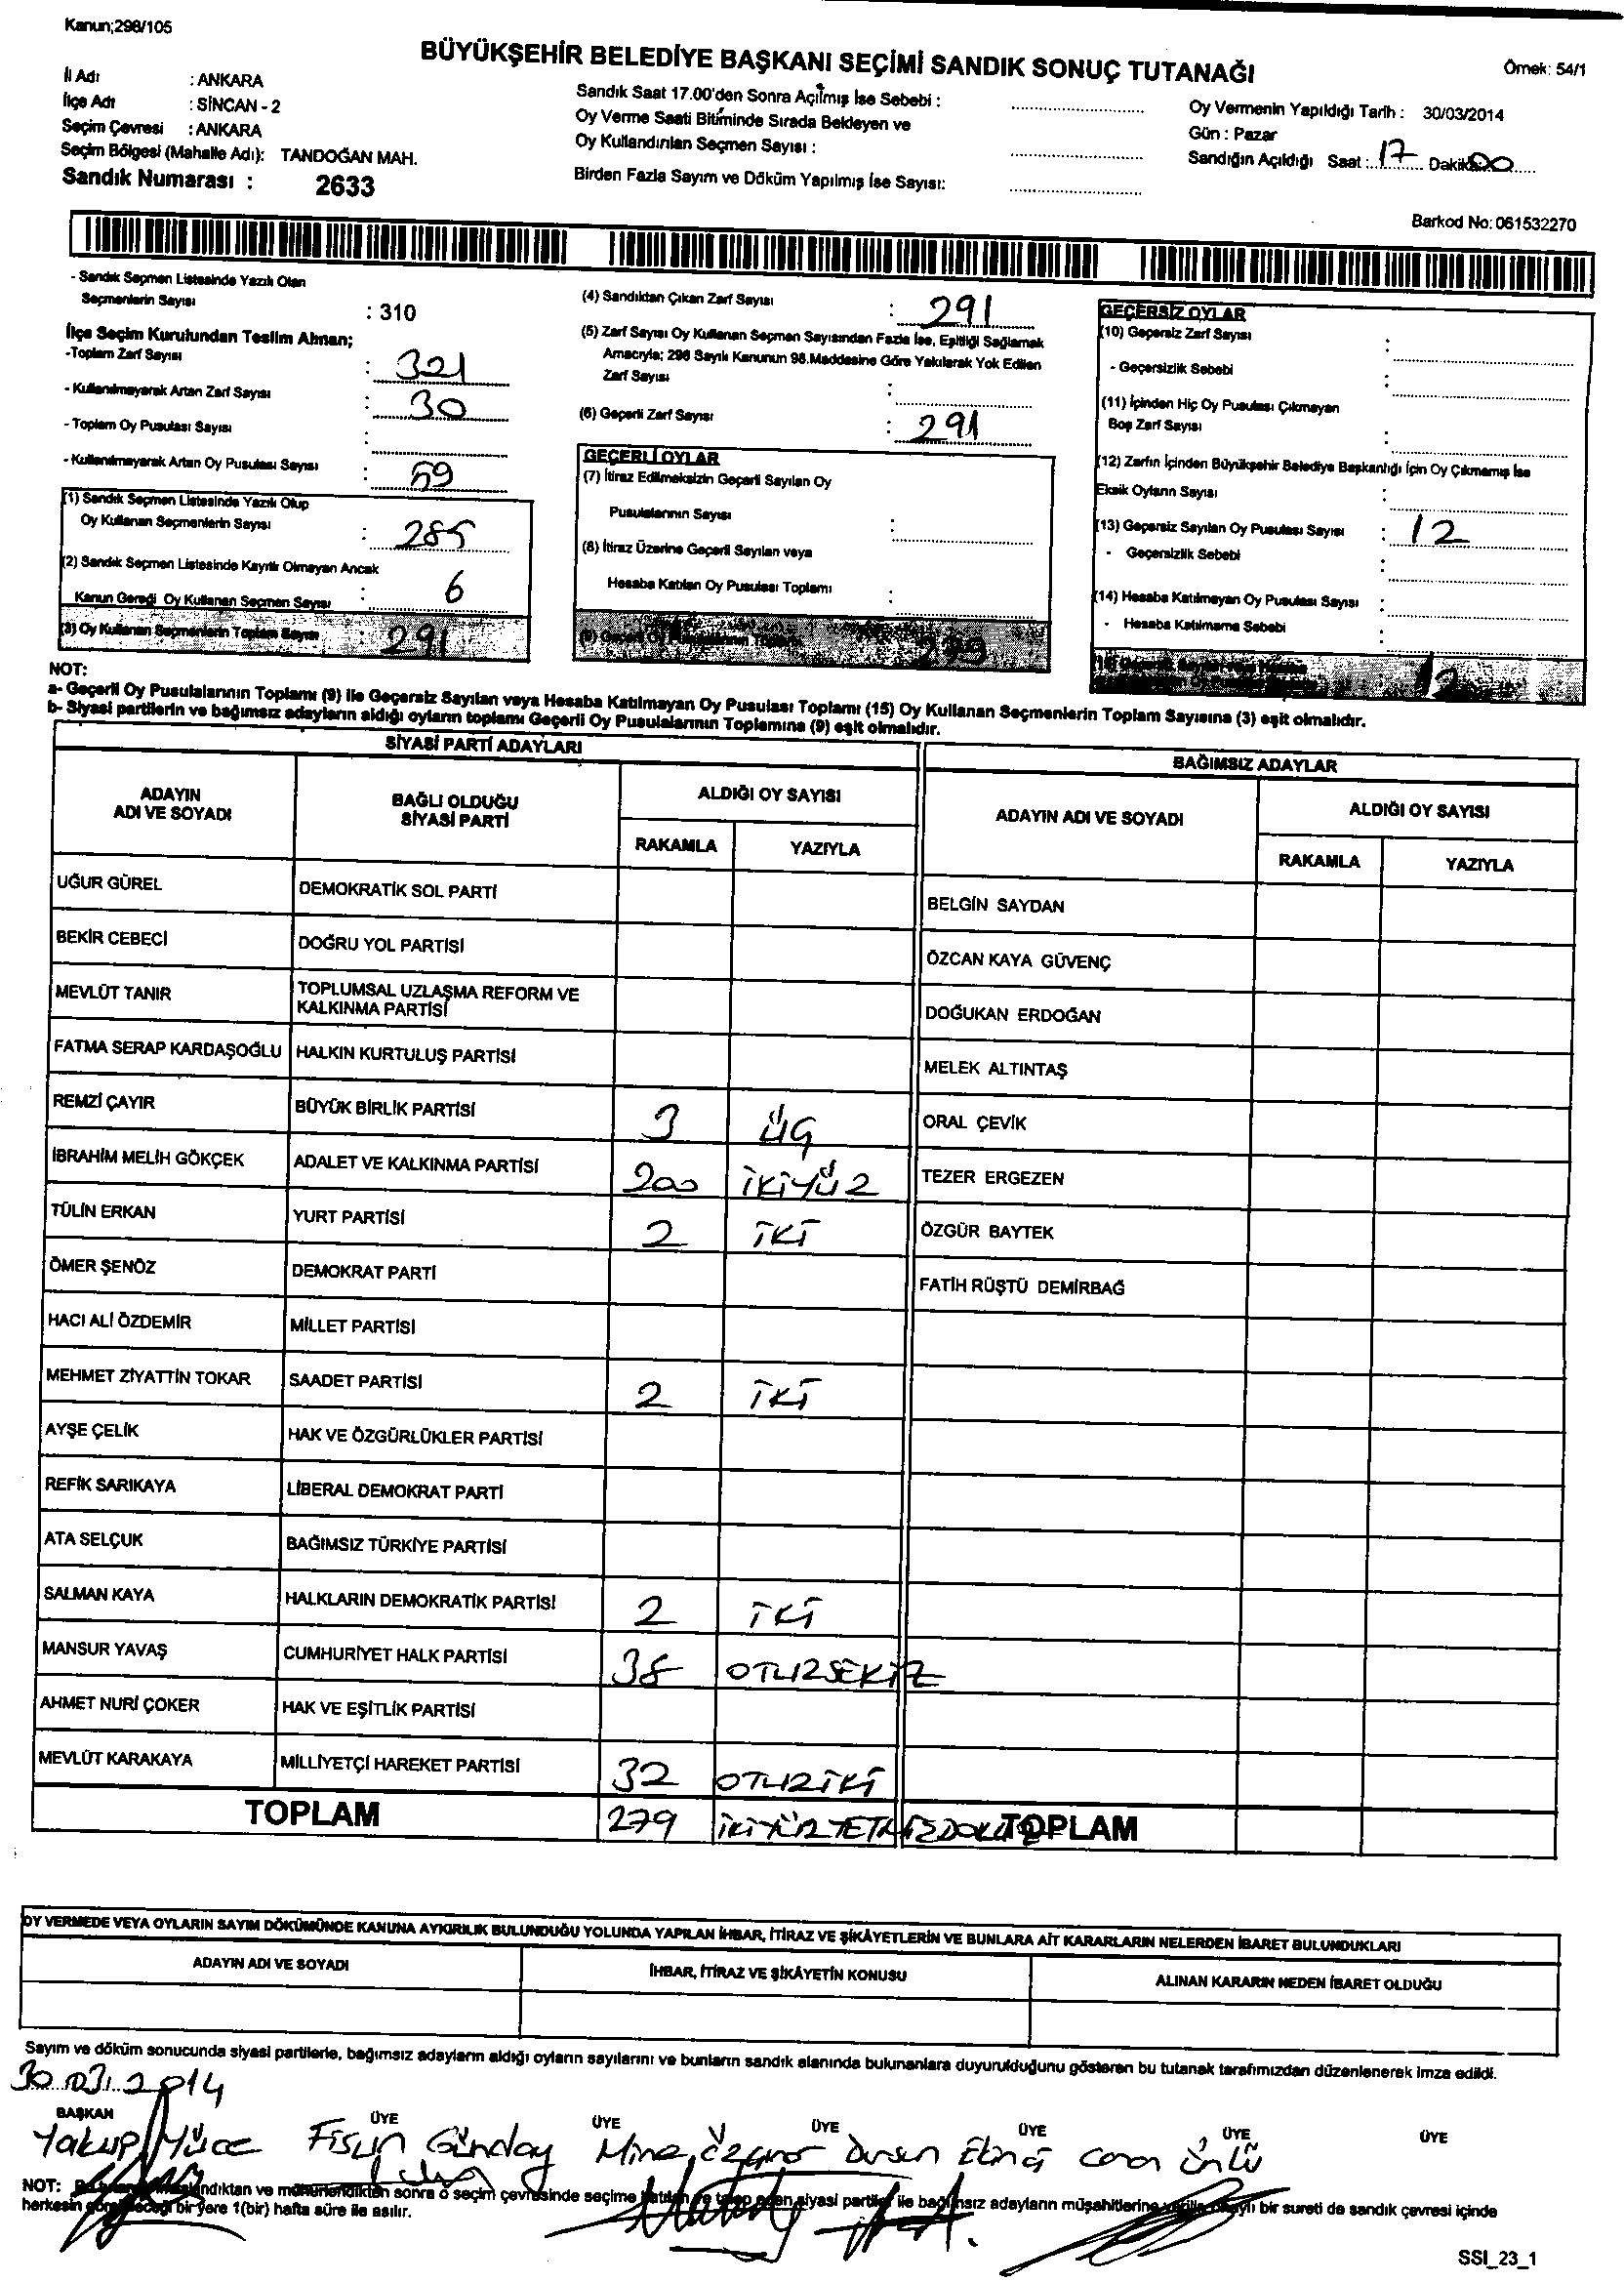 Kanun;298/105
BÜYÜKŞEHİR BELEDİYE BAŞKANI SEÇİMİ SANDIK SONUÇ TUTANAĞI
Örnek: 54/1
İl Adı : ANKARA
İlçe Adı : SİNCAN - 2
Seçim Çevresi : ANKARA
Seçim Bölgesi (Mahalle Adı): TANDOĞAN MAH.
Sandık Numarası : 2633
Sandık Saat 17.00'den Sonra Açılmış İse Sebebi :
Oy Verme Saati Bitiminde Sırada Bekleyen ve
Oy Kullandırılan Seçmen Sayısı :
Birden Fazla Sayım ve Döküm Yapılmış İse Sayısı:
Oy Vermenin Yapıldığı Tarih : 30/03/2014
Gün : Pazar
Sandığın Açıldığı Saat : 17 Dakika 00
Barkod No: 061532270
- Sandık Seçmen Listesinde Yazılı Olan
Seçmenlerin Sayısı : 310
İlçe Seçim Kurulundan Teslim Alınan;
-Toplam Zarf Sayısı : 321
- Kullanılmayarak Artan Zarf Sayısı : 30
- Toplam Oy Pusulası Sayısı :
- Kullanılmayarak Artan Oy Pusulası Sayısı : 59
(1) Sandık Seçmen Listesinde Yazılı Olup
Oy Kullanan Seçmenlerin Sayısı : 285
(2) Sandık Seçmen Listesinde Kayıtlı Olmayan Ancak
Kanun Gereği Oy Kullanan Seçmen Sayısı : 6
(3) Oy Kullanan Seçmenlerin Toplam Sayısı : 291
(4) Sandıktan Çıkan Zarf Sayısı : 291
(5) Zarf Sayısı Oy Kullanan Seçmen Sayısından Fazla İse, Eşitliği Sağlamak
Amacıyla; 298 Sayılı Kanunun 98.Maddesine Göre Yakılarak Yok Edilen
Zarf Sayısı :
(6) Geçerli Zarf Sayısı : 291
GEÇERLİ OYLAR
(7) İtiraz Edilmeksizin Geçerli Sayılan Oy
Pusulalarının Sayısı :
(8) İtiraz Üzerine Geçerli Sayılan veya
Hesaba Katılan Oy Pusulası Toplamı :
(9) Geçerli Oy Pusulalarının Toplamı 279
GEÇERSİZ OYLAR
(10) Geçersiz Zarf Sayısı :
- Geçersizlik Sebebi :
(11) İçinden Hiç Oy Pusulası Çıkmayan
Boş Zarf Sayısı :
(12) Zarfın İçinden Büyükşehir Belediye Başkanlığı İçin Oy Çıkmamış İse
Eksik Oyların Sayısı :
(13) Geçersiz Sayılan Oy Pusulası Sayısı : 12
- Geçersizlik Sebebi :
(14) Hesaba Katılmayan Oy Pusulası Sayısı :
- Hesaba Katılmama Sebebi :
12
NOT:
a- Geçerli Oy Pusulalarının Toplamı (9) ile Geçersiz Sayılan veya Hesaba Katılmayan Oy Pusulası Toplamı (15) Oy Kullanan Seçmenlerin Toplam Sayısına (3) eşit olmalıdır.
b- Siyasi partilerin ve bağımsız adayların aldığı oyların toplamı Geçerli Oy Pusulalarının Toplamına (9) eşit olmalıdır.
SİYASİ PARTİ ADAYLARI
ADAYIN ADI VE SOYADI BAĞLI OLDUĞU SİYASİ PARTİ ALDIĞI OY SAYISI
RAKAMLA YAZIYLA
UĞUR GÜREL DEMOKRATİK SOL PARTİ
BEKİR CEBECİ DOĞRU YOL PARTİSİ
MEVLÜT TANIR TOPLUMSAL UZLAŞMA REFORM VE KALKINMA PARTİSİ
FATMA SERAP KARDAŞOĞLU HALKIN KURTULUŞ PARTİSİ
REMZİ ÇAYIR BÜYÜK BİRLİK PARTİSİ 3 ÜÇ
İBRAHİM MELİH GÖKÇEK ADALET VE KALKINMA PARTİSİ 200 İKİYÜZ
TÜLİN ERKAN YURT PARTİSİ 2 İKİ
ÖMER ŞENÖZ DEMOKRAT PARTİ
HACI ALİ ÖZDEMİR MİLLET PARTİSİ
MEHMET ZİYATTİN TOKAR SAADET PARTİSİ 2 İKİ
AYŞE ÇELİK HAK VE ÖZGÜRLÜKLER PARTİSİ
REFİK SARIKAYA LİBERAL DEMOKRAT PARTİ
ATA SELÇUK BAĞIMSIZ TÜRKİYE PARTİSİ
SALMAN KAYA HALKLARIN DEMOKRATİK PARTİSİ 2 İKİ
MANSUR YAVAŞ CUMHURİYET HALK PARTİSİ 38 OTUZSEKİZ
AHMET NURİ ÇOKER HAK VE EŞİTLİK PARTİSİ
MEVLÜT KARAKAYA MİLLİYETÇİ HAREKET PARTİSİ 32 OTUZİKİ
TOPLAM 279 İKİYÜZYETMİŞDOKUZ
BAĞIMSIZ ADAYLAR
ADAYIN ADI VE SOYADI ALDIĞI OY SAYISI
RAKAMLA YAZIYLA
BELGİN SAYDAN
ÖZCAN KAYA GÜVENÇ
DOĞUKAN ERDOĞAN
MELEK ALTINTAŞ
ORAL ÇEVİK
TEZER ERGEZEN
ÖZGÜR BAYTEK
FATİH RÜŞTÜ DEMİRBAĞ
TOPLAM
OY VERMEDE VEYA OYLARIN SAYIM DÖKÜMÜNDE KANUNA AYKIRILIK BULUNDUĞU YOLUNDA YAPILAN İHBAR, İTİRAZ VE ŞİKÂYETLERİN VE BUNLARA AİT KARARLARIN NELERDEN İBARET BULUNDUKLARI
ADAYIN ADI VE SOYADI İHBAR, İTİRAZ VE ŞİKÂYETİN KONUSU ALINAN KARARIN NEDEN İBARET OLDUĞU
Sayım ve döküm sonucunda siyasi partilerle, bağımsız adayların aldığı oyların sayılarını ve bunların sandık alanında bulunanlara duyurulduğunu gösteren bu tutanak tarafımızdan düzenlenerek imza edildi.
30.03.2014
BAŞKAN ÜYE ÜYE ÜYE ÜYE ÜYE ÜYE
Yakup Yüce Fisun Günday Mine Dursun Ekinci Ünlü
NOT: ve mühürlendikten sonra o seçim çevresinde seçime siyasi partiler ile bağımsız adayların müşahitlerine bir sureti de sandık çevresi içinde
herkesin göreceği bir yere 1(bir) hafta süre ile asılır.
SSI_23_1